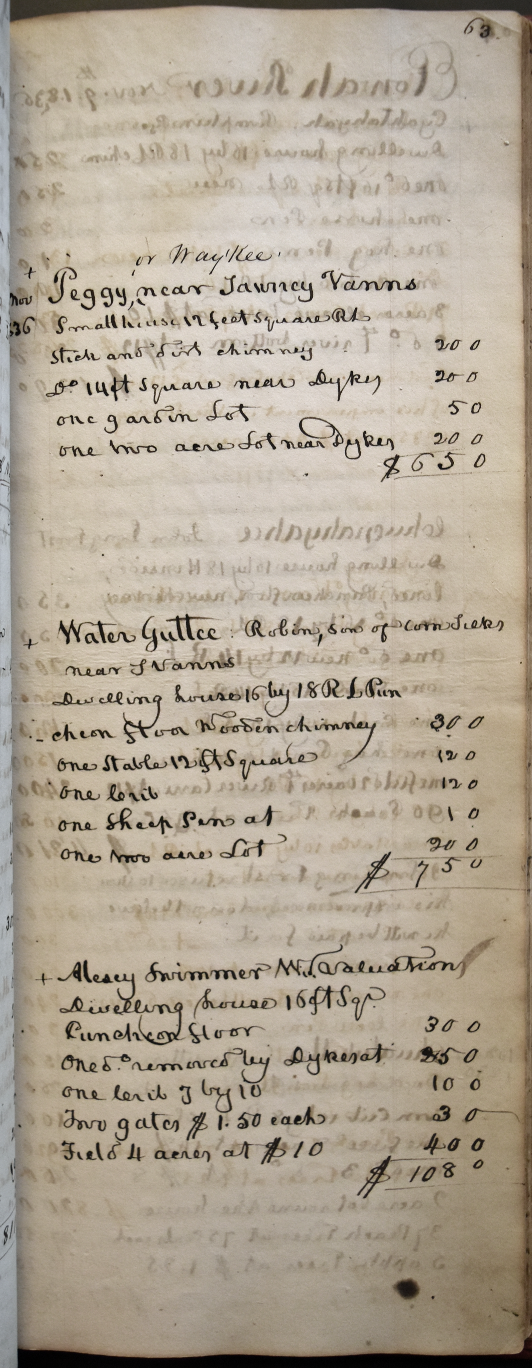 63
or WayKee
+
Nov Peggy, near Tawney Vanns
Small house 12 feet square RL
stick and dirt chimney 20 0
Do 14 ft Square near Dykes 20 0
one garden Lot 5 0
one two acre Lot near Dykes 20 0
$ 65 0
+ Water Guttee : Robin, son of Corn Silks
near T Vanns
Dwelling house 16 by 18 R L Pun
cheon floor Wooden chimney 30 0
one Stable 12 ft Square 12 0
one Crib 12 0
one Sheep Pen at 1 0
one two acre Lot 20 0
$ 75 0
+ Alexey Swimmer Valuation
Dwelling house 16 ft Sqr
Puncheon floor 30 0
One do removed by Dykes at 25 0
one Crib 7 by 10 10 0
Two gates $ 1.50 each 3 0
Field 4 acres at $ 10 40 0
$ 108 0